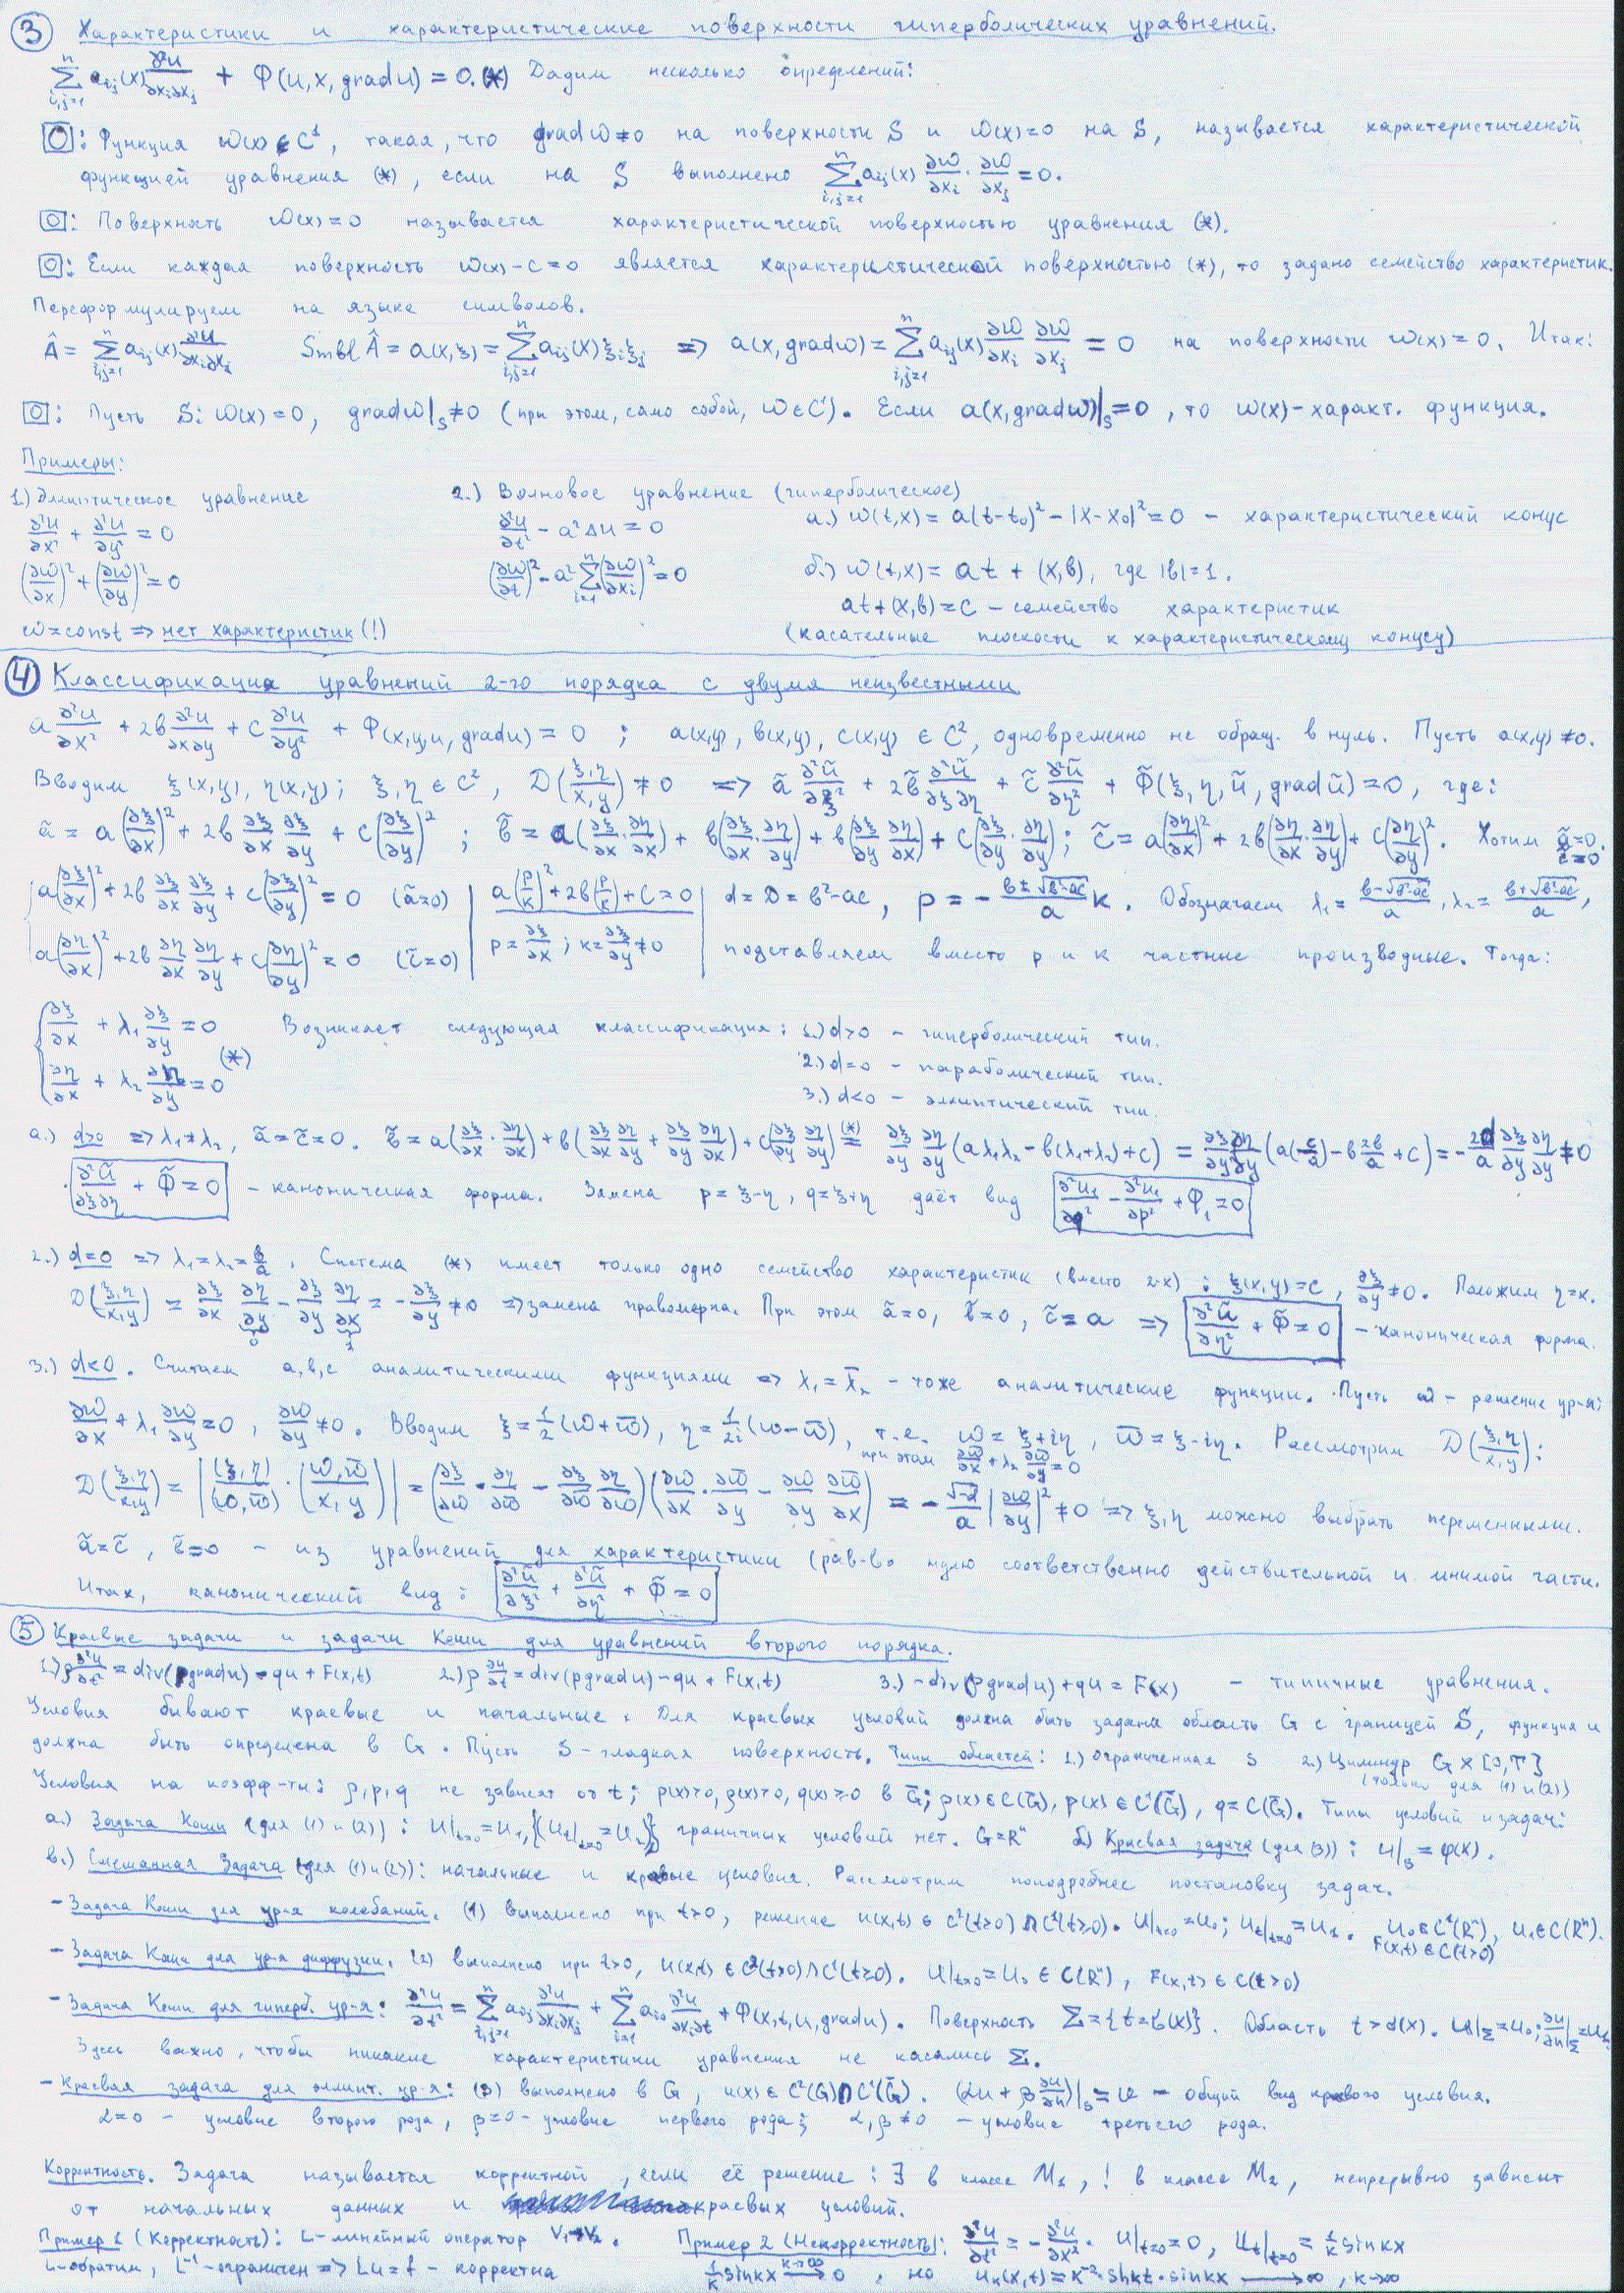 ③ Характеристики и характеристические поверхности гиперболических уравнений.
∑_{i,j=1}^n a_ij(x) ∂²u/∂x_i∂x_j + Φ(u,x,grad u) = 0. (*) Дадим несколько определений:
O: Функция ω(x) ∈ C¹, такая, что grad ω ≠ 0 на поверхности S и ω(x)=0 на S, называется характеристической
функцией уравнения (*), если на S выполнено ∑_{i,j=1}^n a_ij(x) ∂ω/∂x_i · ∂ω/∂x_j = 0.
O: Поверхность ω(x)=0 называется характеристической поверхностью уравнения (*).
O: Если каждая поверхность ω(x)-c=0 является характеристической поверхностью (*), то задано семейство характеристик.
Переформулируем на языке символов.
Â = ∑_{i,j=1}^n a_ij(x) ∂²u/∂x_i∂x_j Smbl Â = a(x,ξ) = ∑_{i,j=1}^n a_ij(x) ξ_i ξ_j => a(x, grad ω) = ∑_{i,j=1}^n a_ij(x) ∂ω/∂x_i ∂ω/∂x_j = 0 на поверхности ω(x)=0. Итак:
O: Пусть S: ω(x)=0, grad ω|_S ≠ 0 (при этом, само собой, ω∈C¹). Если a(x,grad ω)|_S = 0, то ω(x) - характ. функция.
Примеры:
1.) Эллиптическое уравнение
∂²u/∂x² + ∂²u/∂y² = 0
(∂ω/∂x)² + (∂ω/∂y)² = 0
ω = const => нет характеристик (!)
2.) Волновое уравнение (гиперболическое)
∂²u/∂t² - a²Δu = 0
(∂ω/∂t)² - a² ∑_{i=1}^n (∂ω/∂x_i)² = 0
а.) ω(t,x) = a(t-t₀)² - |x-x₀|² = 0 - характеристический конус
б.) ω(t,x) = at + (x,b), где |b|=1.
at + (x,b) = c - семейство характеристик
(касательные плоскости к характеристическому конусу)
④ Классификация уравнений 2-го порядка с двумя неизвестными
a ∂²u/∂x² + 2b ∂²u/∂x∂y + c ∂²u/∂y² + Φ(x,y,u,grad u) = 0 ; a(x,y), b(x,y), c(x,y) ∈ C², одновременно не обращ. в нуль. Пусть a(x,y) ≠ 0.
Вводим ξ(x,y), η(x,y); ξ,η ∈ C², D(ξ,η / x,y) ≠ 0 => ã ∂²ũ/∂ξ² + 2b̃ ∂²ũ/∂ξ∂η + c̃ ∂²ũ/∂η² + Φ̃(ξ,η,ũ,grad ũ) = 0, где:
ã = a(∂ξ/∂x)² + 2b ∂ξ/∂x ∂ξ/∂y + c(∂ξ/∂y)² ; b̃ = a(∂ξ/∂x · ∂η/∂x) + b(∂ξ/∂x · ∂η/∂y) + b(∂ξ/∂y ∂η/∂x) + c(∂ξ/∂y · ∂η/∂y); c̃ = a(∂η/∂x)² + 2b(∂η/∂x · ∂η/∂y) + c(∂η/∂y)². Хотим ã=0. c̃=0
a(∂ξ/∂x)² + 2b ∂ξ/∂x ∂ξ/∂y + c(∂ξ/∂y)² = 0 (ã=0) | a(p/k)² + 2b(p/k) + c = 0 | d = D = b²-ac, p = - (b±√(b²-ac))/a k. Обозначаем λ₁ = (b-√(b²-ac))/a, λ₂ = (b+√(b²-ac))/a,
a(∂η/∂x)² + 2b ∂η/∂x ∂η/∂y + c(∂η/∂y)² = 0 (c̃=0) | p = ∂ξ/∂x ; k = ∂ξ/∂y ≠ 0 | подставляем вместо p и k частные производные. Тогда:
{ ∂ξ/∂x + λ₁ ∂ξ/∂y = 0 Возникает следующая классификация: 1.) d>0 - гиперболический тип.
∂η/∂x + λ₂ ∂η/∂y = 0 (*) 2.) d=0 - параболический тип.
3.) d<0 - эллиптический тип.
а.) d>0 => λ₁≠λ₂, ã=c̃=0. b̃ = a(∂ξ/∂x · ∂η/∂x) + b(∂ξ/∂x ∂η/∂y + ∂ξ/∂y ∂η/∂x) + c(∂ξ/∂y ∂η/∂y) =(*) ∂ξ/∂y ∂η/∂y (aλ₁λ₂ - b(λ₁+λ₂) + c) = ∂ξ/∂y ∂η/∂y (a(c/a) - b 2b/a + c) = - 2d/a ∂ξ/∂y ∂η/∂y ≠ 0
∂²ũ/∂ξ∂η + Φ̃ = 0 - каноническая форма. Замена p = ξ-η, q = ξ+η даёт вид ∂²u₁/∂q² - ∂²u₁/∂p² + Φ₁ = 0
2.) d=0 => λ₁=λ₂=b/a. Система (*) имеет только одно семейство характеристик (вместо 2-х): ξ(x,y)=c, ∂ξ/∂y≠0. Положим η=x.
D(ξ,η / x,y) = ∂ξ/∂x ∂η/∂y - ∂ξ/∂y ∂η/∂x = -∂ξ/∂y ≠ 0 => замена правомерна. При этом ã=0, b̃=0, c̃=a => ∂²ũ/∂η² + Φ̃ = 0 - каноническая форма.
3.) d<0. Считаем a,b,c аналитическими функциями => λ₁ = λ̄₂ - тоже аналитические функции. Пусть ω - решение ур-я:
∂ω/∂x + λ₁ ∂ω/∂y = 0, ∂ω/∂y ≠ 0. Вводим ξ = 1/2(ω+ω̄), η = 1/2i(ω-ω̄), т.е. ω = ξ+iη, ω̄ = ξ-iη. Рассмотрим D(ξ,η / x,y):
при этом ∂ω̄/∂x + λ₂ ∂ω̄/∂y = 0
D(ξ,η / x,y) = |(ξ,η)/(ω,ω̄) · (ω,ω̄)/(x,y)| = (∂ξ/∂ω · ∂η/∂ω̄ - ∂ξ/∂ω̄ ∂η/∂ω)(∂ω/∂x · ∂ω̄/∂y - ∂ω/∂y ∂ω̄/∂x) = - √-d/a |∂ω/∂y|² ≠ 0 => ξ,η можно выбрать переменными.
ã=c̃, b̃=0 - из уравнений для характеристики (рав-во нулю соответственно действительной и мнимой части.
Итак, канонический вид: ∂²ũ/∂ξ² + ∂²ũ/∂η² + Φ̃ = 0
⑤ Краевые задачи и задачи Коши для уравнений второго порядка.
1.) ρ ∂²u/∂t² = div(p grad u) - qu + F(x,t) 2.) ρ ∂u/∂t = div(p grad u) - qu + F(x,t) 3.) -div(p grad u) + qu = F(x) - типичные уравнения.
Условия бывают краевые и начальные. Для краевых условий должна быть задана область G с границей S, функция u
должна быть определена в G. Пусть S - гладкая поверхность. Типы областей: 1.) ограниченная S 2.) Цилиндр G × [0,T]
(только для (1) и (2))
Условия на коэфф-ты: ρ,p,q не зависят от t; p(x)>0, ρ(x)>0, q(x)≥0 в Ḡ; ρ(x)∈C(Ḡ), p(x)∈C¹(Ḡ), q=C(Ḡ). Типы условий и задач:
а.) Задача Коши (для (1) и (2)): u|_{t=0}=u₁, {(u_t|_{t=0}=u₂)} граничных условий нет. G=Rⁿ б.) Краевая задача (для (3)): u|_S = φ(x).
в.) Смешанная задача (для (1) и (2)): начальные и краевые условия. Рассмотрим поподробнее постановку задач.
- Задача Коши для ур-я колебаний. (1) выполнено при t>0, решение u(x,t) ∈ C²(t>0)∩C¹(t≥0). u|_{t=0}=u₀; u_t|_{t=0}=u₁. u₀∈C¹(Rⁿ), u₁∈C(Rⁿ).
F(x,t)∈C(t>0)
- Задача Коши для ур-я диффузии. (2) выполнено при t>0, u(x,t) ∈ C²(t>0)∩C¹(t≥0). u|_{t=0}=u₀ ∈ C(Rⁿ), F(x,t) ∈ C(t>0)
- Задача Коши для гиперб. ур-я: ∂²u/∂t² = ∑_{i,j=1}^n a_ij ∂²u/∂x_i∂x_j + ∑_{i=1}^n a_i0 ∂²u/∂x_i∂t + Φ(x,t,u,grad u). Поверхность Σ={t=σ(x)}. Область t>σ(x). u|_Σ=u₀; ∂u/∂n|_Σ=u₁.
Здесь важно, чтобы никакие характеристики уравнения не касались Σ.
- Краевая задача для эллипт. ур-я: (3) выполнено в G, u(x) ∈ C²(G)∩C¹(Ḡ). (αu + β ∂u/∂n)|_S = υ - общий вид краевого условия.
α=0 - условие второго рода, β=0 - условие первого рода; α,β≠0 - условие третьего рода.
Корректность. Задача называется корректной, если её решение: ∃ в классе M₁, ! в классе M₂, непрерывно зависит
от начальных данных и краевых условий.
Пример 1 (Корректность): L - линейный оператор V₁→V₂. Пример 2 (Некорректность): ∂²u/∂t² = -∂²u/∂x². u|_{t=0}=0, u_t|_{t=0} = 1/k sin kx
L - обратим, L⁻¹ - ограничен => Lu=f - корректна 1/k sin kx →(k→∞) 0, но u_k(x,t) = k⁻²·sh kt·sin kx → ∞, k→∞